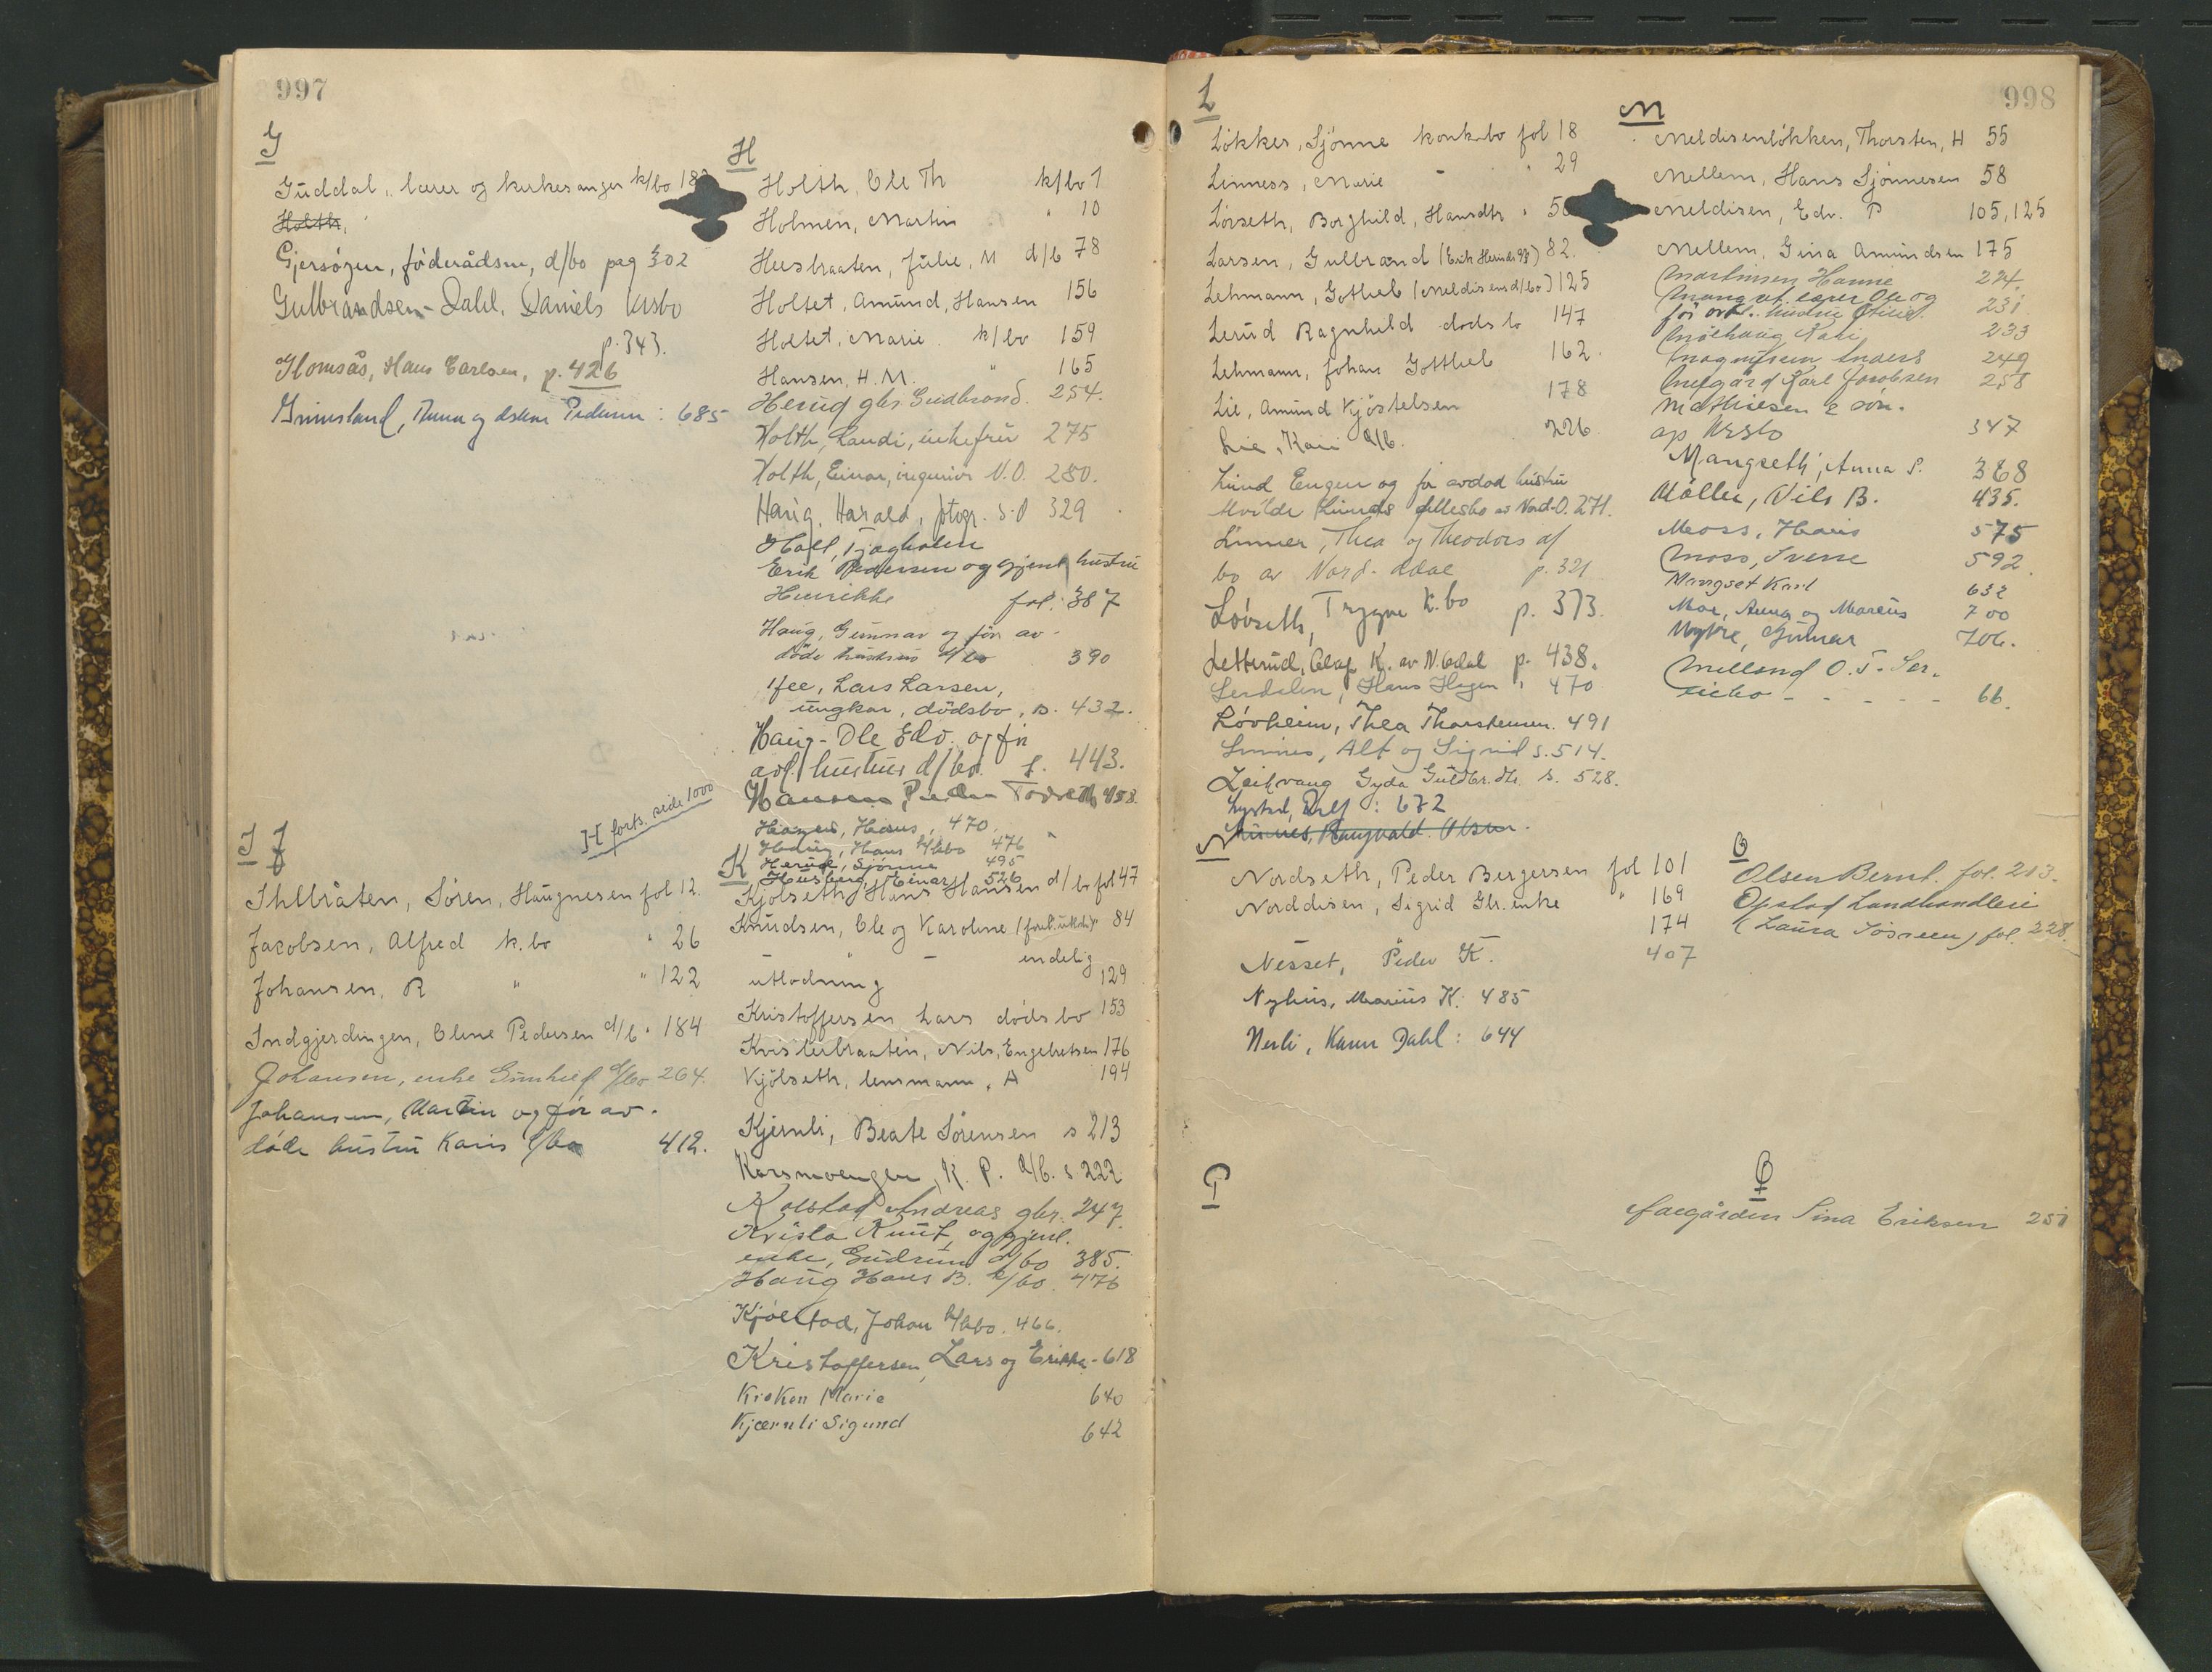 997
G
Guddal, lærer og kirkesanger k/bo 182
Holth,
Gjersøyen, föderådsm, d/bo pag 302
Gulbrandsen-Dahl, Daniels krsbo
p. 343.
Glomsås, Hans Carlsen, p. 426
Grinisland, Anna og Pedersen : 685
H forts. side 1000
I J
Ihlbråten, Søren, Haugnesen fol 12.
Jacobsen, Alfred k.bo " 26
Johansen, R " " 122
Indgjerdingen, Elene Pedersen d/b. 184
Johansen, enke Gunhild d/bo 264.
Johansen, Martin og för av-
døde hustru Karis d/bo 412.
H
Holth, Ole Th k/bo 1
Holmen, Martin " 10
Husbraaten, Julie, M d/b 78
Holtet, Amund, Hansen 156
Holtet, Marie k/bo 159
Hansen, H. M. " 165
Herud gbr Gudbrand. 254.
Holth, Randi, enkefru 275
Holth, Einar, ingeniör N.O. 280.
Haug, Harald, fotogr. S.O 329
Hall,
Erik Pedersen og gjenl hustru
Henrikke fol. 387
Haug, Gunnar og för av-
døde hustrus d/bo 390
Lars Larsen,
ungkar, dödsbo, B. 432.
Haug-Ole Edv. og för
avd. hustrus d/bo. f. 443.
Hansen, 458.
Hagen, Hans, 470.
Haug, Hans k/kbo 476
Herud, Sjönne 495
Husberg, Einar 526
K
Kjölseth, Hans Hansen d/bo fol 47
Knudsen, Ole og Karoline (forel. utlodn) 84
" - endelig
utlodning 129
Kristoffersen Lars dødsbo 153
Kvisterbraaten, Nils, Engebretsen 176
Kjölseth, lensmann, A 194
Kjernli, Beate Sörensen s 213
Korsmoengen, K. P. d/b. s 222
Kolstad Andreas gbr. 247.
Kvisla Knut, og gjenl.
enke, Gudrun d/bo 385.
Haug Hans B. k/bo. 476
Kjölstad, Johan k/kbo. 466.
Kristoffersen, Lars og Erikka - 618
Kroken Marie 640
Kjærnli Sigund 642
998
L
Løkker, Sjönne konk.bo fol 18
Linness, Marie - " 29
Lövseth, Borghild, Hansdtr " 50
Larsen, Gulbrand (Erik Herud 98) 82.
Lehmann, Gotlieb (Meldisens d/bo) 125
Lerud Ragnhild dødsbo 147
Lehmann, Johan Gottlieb 162.
Lie, Amund Kjöstelsen 178
Lie, Kari d/b. 226
Lund Engen og for avdød hustru
Mvilde Lunds fellesbo av Nord-O. 271.
Linner, Thea og Theodors af
bo av Nord-Odal p. 321
Lövseth, Trygve k.bo p. 373.
Letterud, Olaf K. av N. Odal p. 438.
Lerdalen, Hans Hagen, 470
Lövheim, Thea Thorstensen. 491
Linnes, Alf og Sigrid s. 514.
Leikvang Gyda Guldbr.dtr. s. 528.
Lystad, Rolf : 672
Linnes, Ragnvald Olsen.
N
Nordseth, Peder Bergersen fol 101
Norddisen, Sigrid Gbr.enke " 169
174
Nesset, Peder K. 407
Nyhus, Marius K: 485
Nerli, Karen Dahl : 644
P
M
Meldisenløkken, Thorsten, H 55
Mellem, Hans Sjönnesen 58
Meldisen, Edv. P 105, 125
Mellem, Gina Amundsen 175
Martinsen Hanne 224
Mangset lærer Ole og
för avd. hustru 231
Möhaug Kari 233
Magnussen Anders 249
Melgård Karl Jacobsen 258
Mathiesen & søn.
ap krsbo 347
Mangseth, Anna S. 368
Möller, Nils B. 435.
Moss, Hans 575
Moss, Sverre 592
Mangset Karl 632
Moe, Anna og Marius 700
Myhre, Gunnar 706.
Mellend O. T. Ser-
viebo - - - - - 66.
O
Olsen Bernt. fol. 213.
Opstad Landhandleri
(Laura Iversen) fol. 228.
Q
Sina Eriksen 251